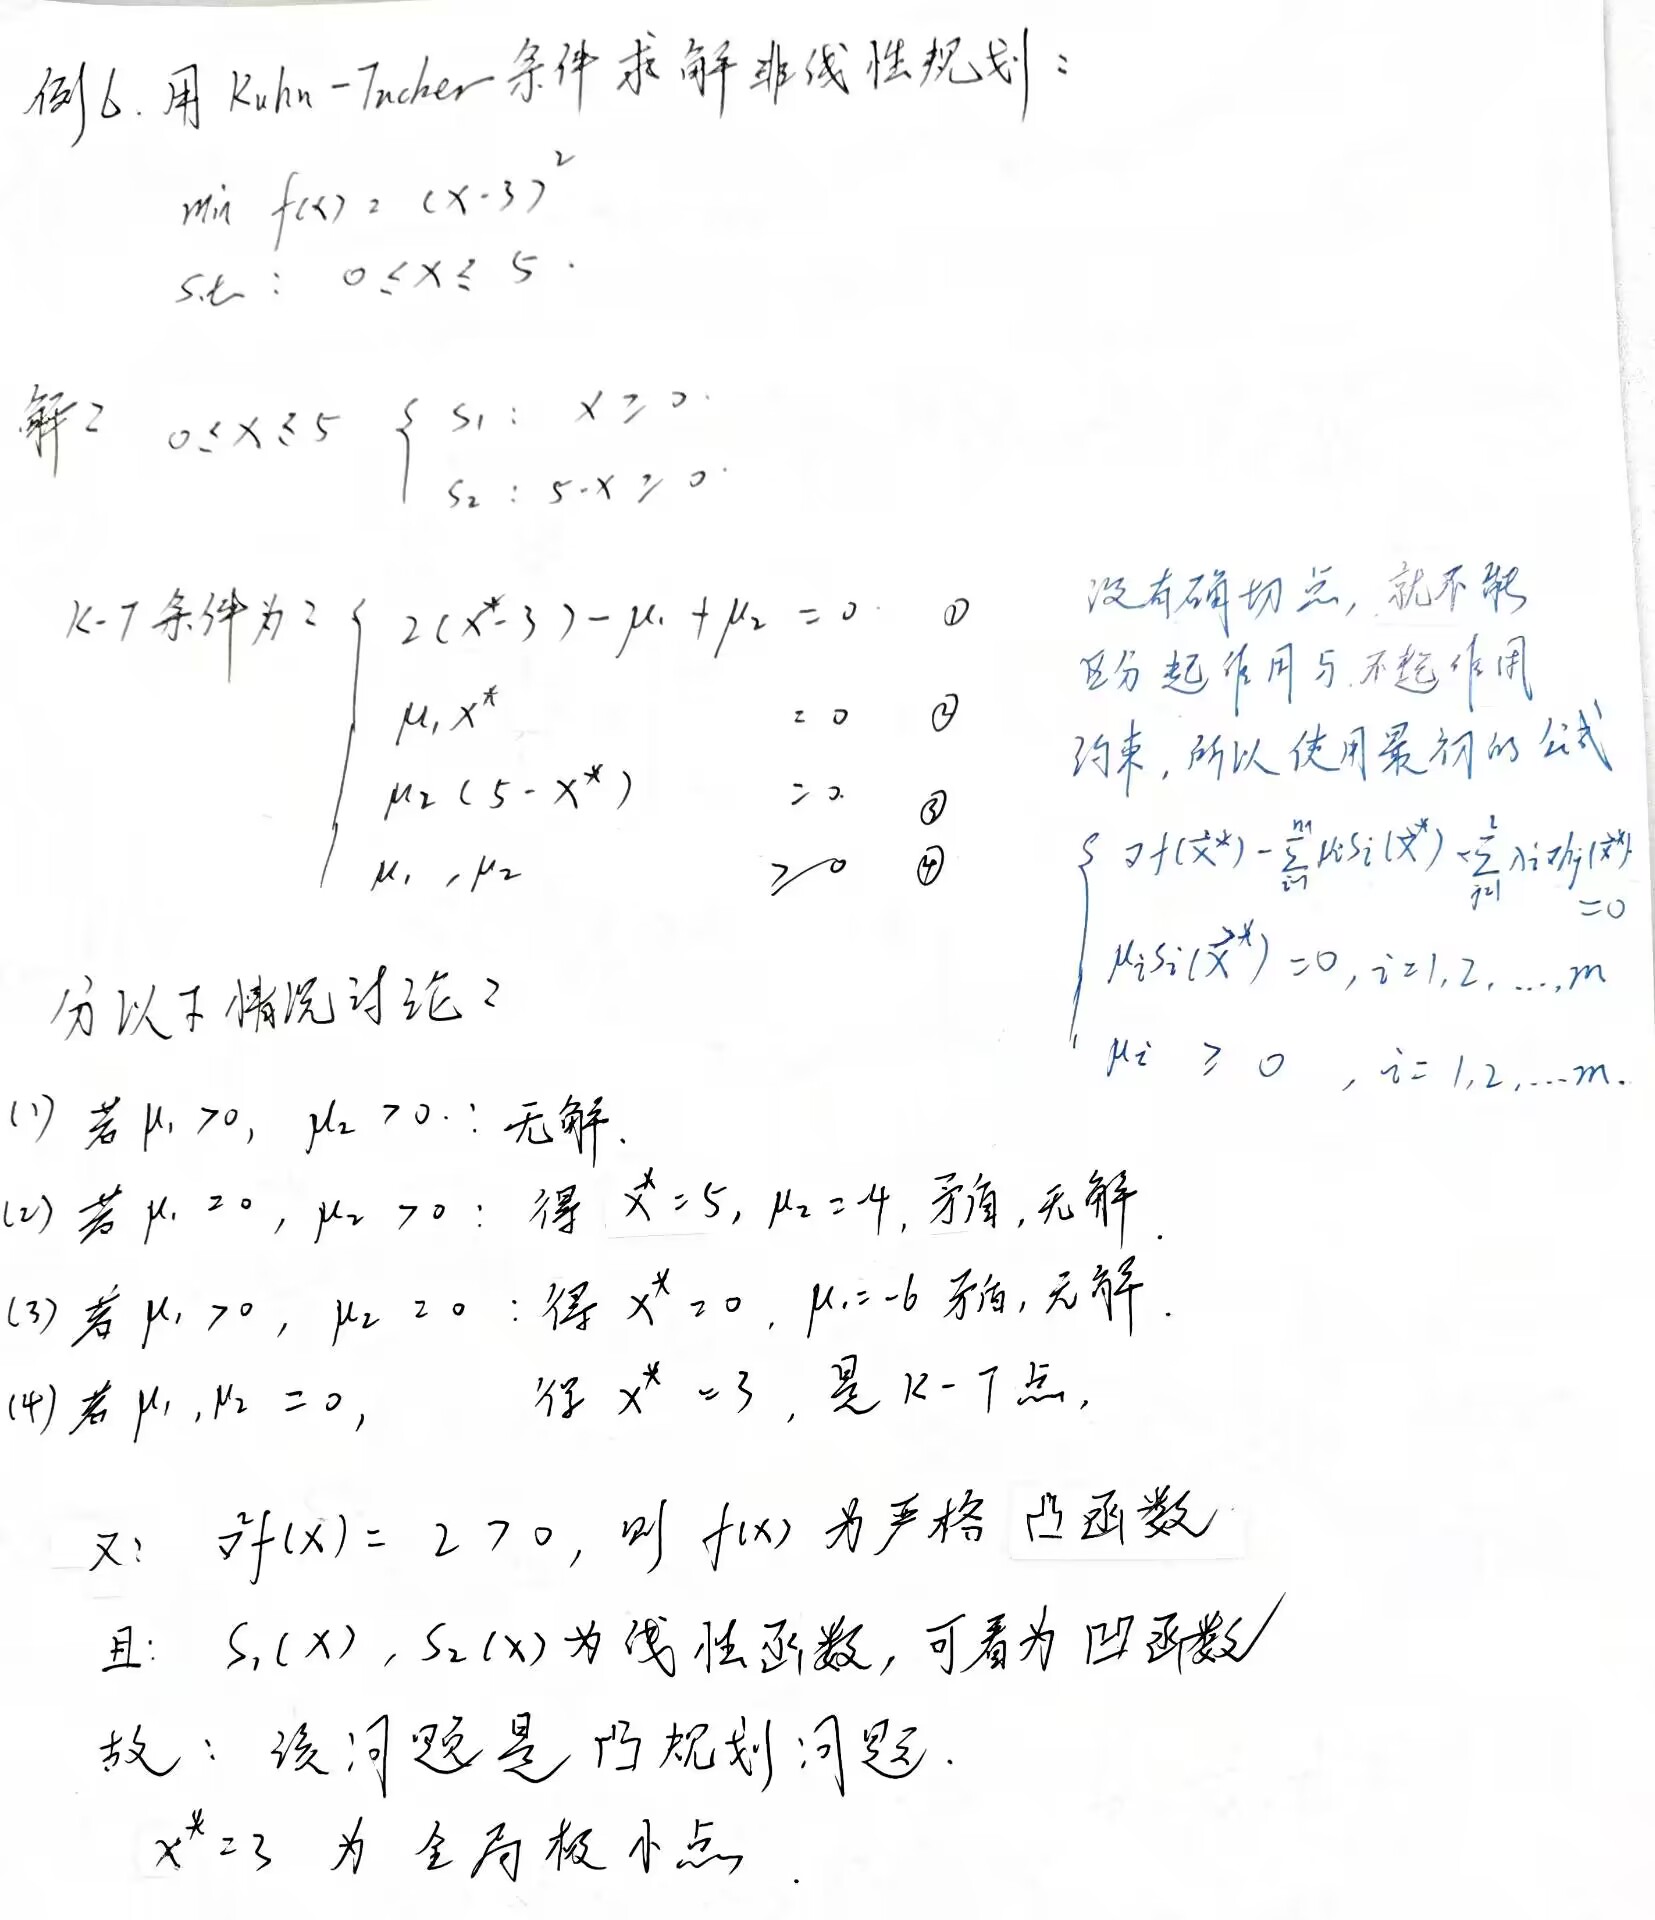 例6. 用 Kuhn-Tucker 条件求解非线性规划：
min f(x) = (x-3)²
s.t. : 0 ≤ x ≤ 5 .
解： 0 ≤ x ≤ 5 { S₁ : x ≥ 0.
S₂ : 5-x ≥ 0.
K-T 条件为： { 2(x*-3) - μ₁ + μ₂ = 0 ①
μ₁x* = 0 ②
μ₂(5-x*) = 0. ③
μ₁, μ₂ ≥ 0 ④
没有确切点, 就不能
区分起作用与不起作用
约束, 所以使用最初的公式
{ ∇f(x⃗*) - Σᵢ₌₁ᵐ μᵢSᵢ(x⃗*) - Σⱼ₌₁ˡ λᵢ∇hⱼ(x⃗*)
=0
μᵢSᵢ(x⃗*) = 0, i=1,2,...,m
μᵢ ≥ 0 , i=1,2,...m.
分以下情况讨论：
(1) 若 μ₁>0, μ₂>0.: 无解.
(2) 若 μ₁=0, μ₂>0: 得 x*=5, μ₂=-4, 矛盾, 无解.
(3) 若 μ₁>0, μ₂=0: 得 x*=0, μ₁=-6 矛盾, 无解.
(4) 若 μ₁,μ₂=0, 得 x*=3, 是 K-T 点,
又: ∇²f(x) = 2 > 0, 则 f(x) 为严格凸函数
且: S₁(x), S₂(x) 为线性函数, 可看为凹函数
故: 该问题是凸规划问题.
x*=3 为全局极小点.